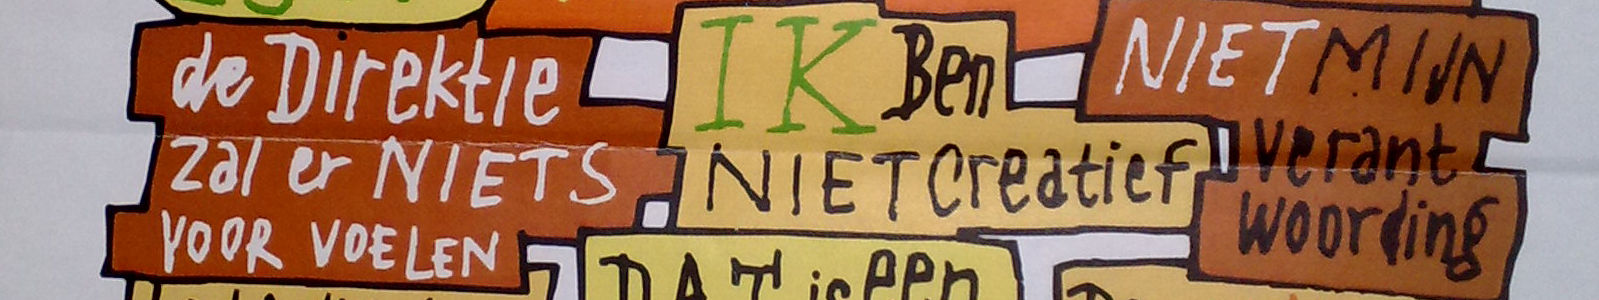 de Direktie
zal er NIETS
VOOR VOELEN
IK Ben
NIET creatief
NIET MIJN
verant
woording
DAT is een